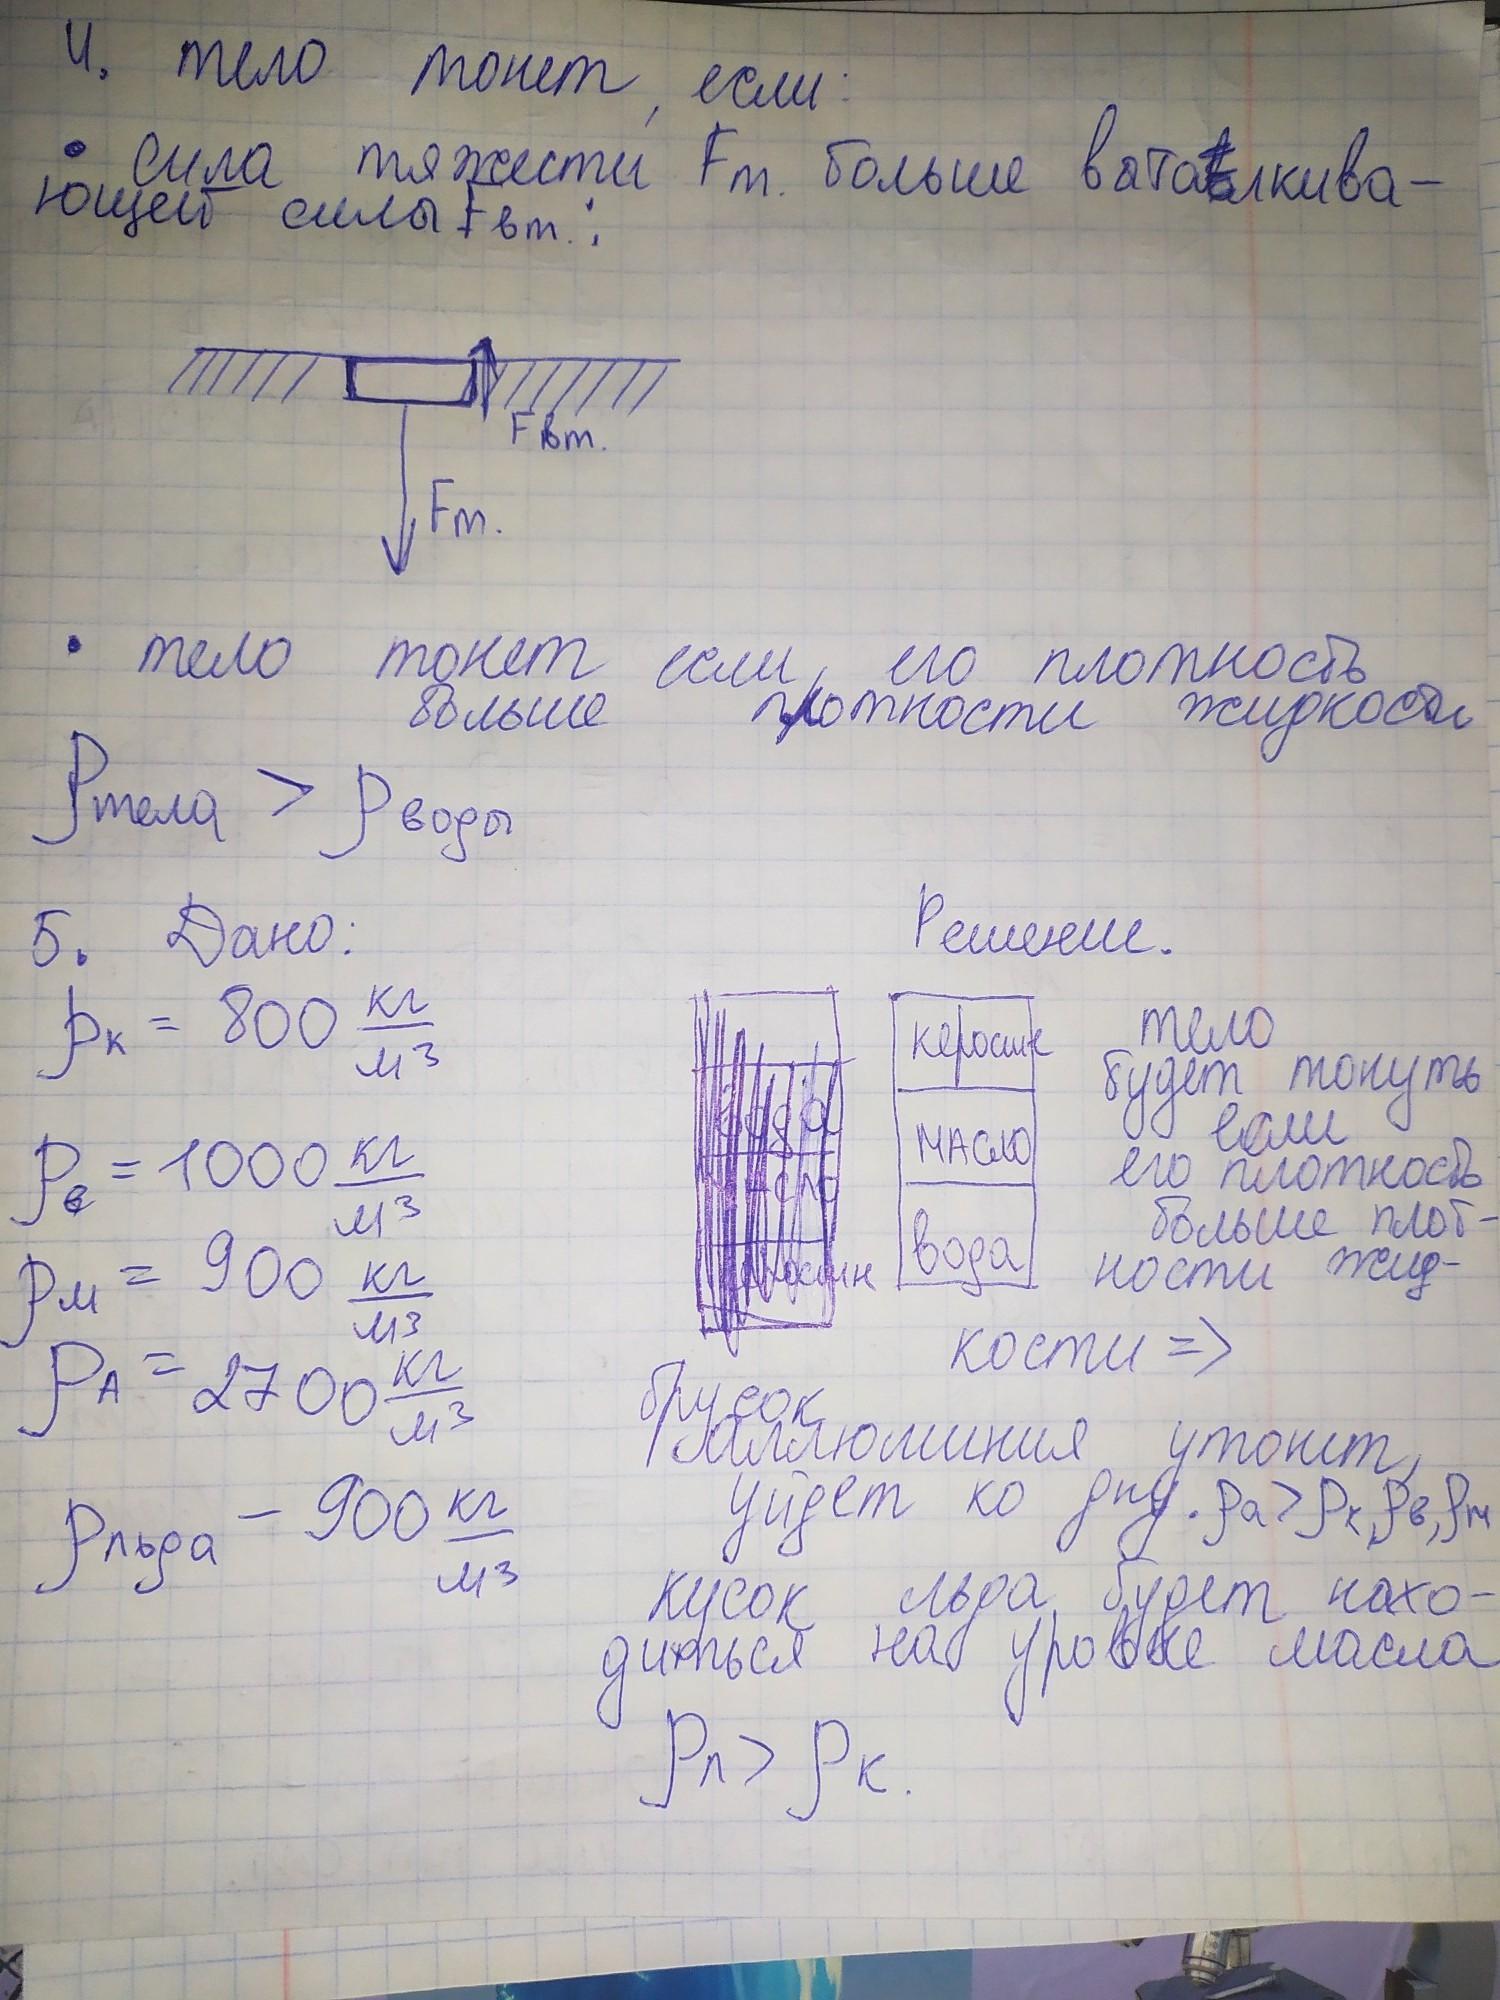 4. тело тонет, если:
• сила тяжести Fт. больше вытаLлкива-
ющей силы Fвт.:
Fвт.
Fт.
• тело тонет если, его плотность
больше плотности жидкости
ρтела > ρводы
5. Дано:
Решение.
ρк = 800 кг/м3
ρв = 1000 кг/м3
ρм = 900 кг/м3
ρА = 2700 кг/м3
ρльда – 900 кг/м3
керосин
масло
вода
тело
будет тонуть
если
его плотность
больше плот-
ности жид-
кости =>
брусок
аллюминия утонет,
уйдет ко дну. ρа > ρк, ρв, ρм
кусок льда будет нахо-
диться на уровне масла
ρл > ρк.